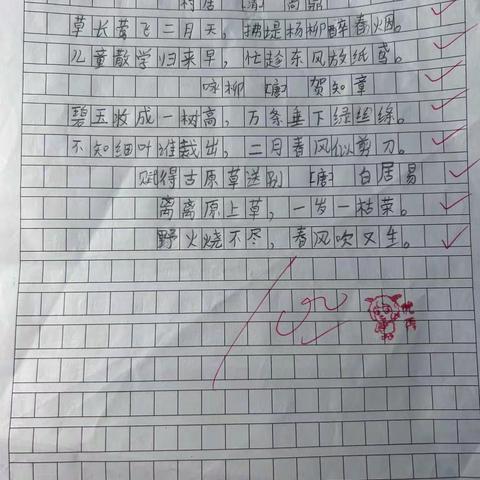 村居 [清] 高鼎
草长莺飞二月天，拂堤杨柳醉春烟。
儿童散学归来早，忙趁东风放纸鸢。
咏柳 [唐] 贺知章
碧玉妆成一树高，万条垂下绿丝绦。
不知细叶谁裁出，二月春风似剪刀。
赋得古原草送别 [唐] 白居易
离离原上草，一岁一枯荣。
野火烧不尽，春风吹又生。
优